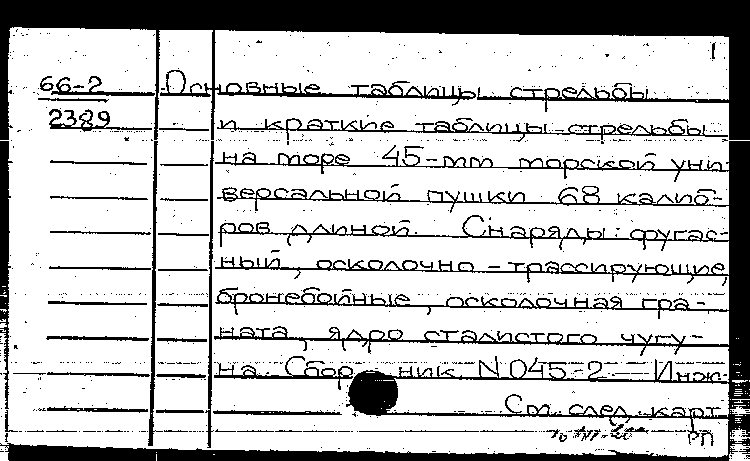 1
66-2 Основные таблицы стрельбы
2389 и краткие таблицы стрельбы
на море 45-мм морской уни-
версальной пушки 68 калиб-
ров длиной. Снаряды: фугас-
ный, осколочно-трассирующие,
бронебойные, осколочная гра-
ната, ядро сталистого чугу-
на. Сборник N 045-2 — Инж.
См. след. карт.
РП